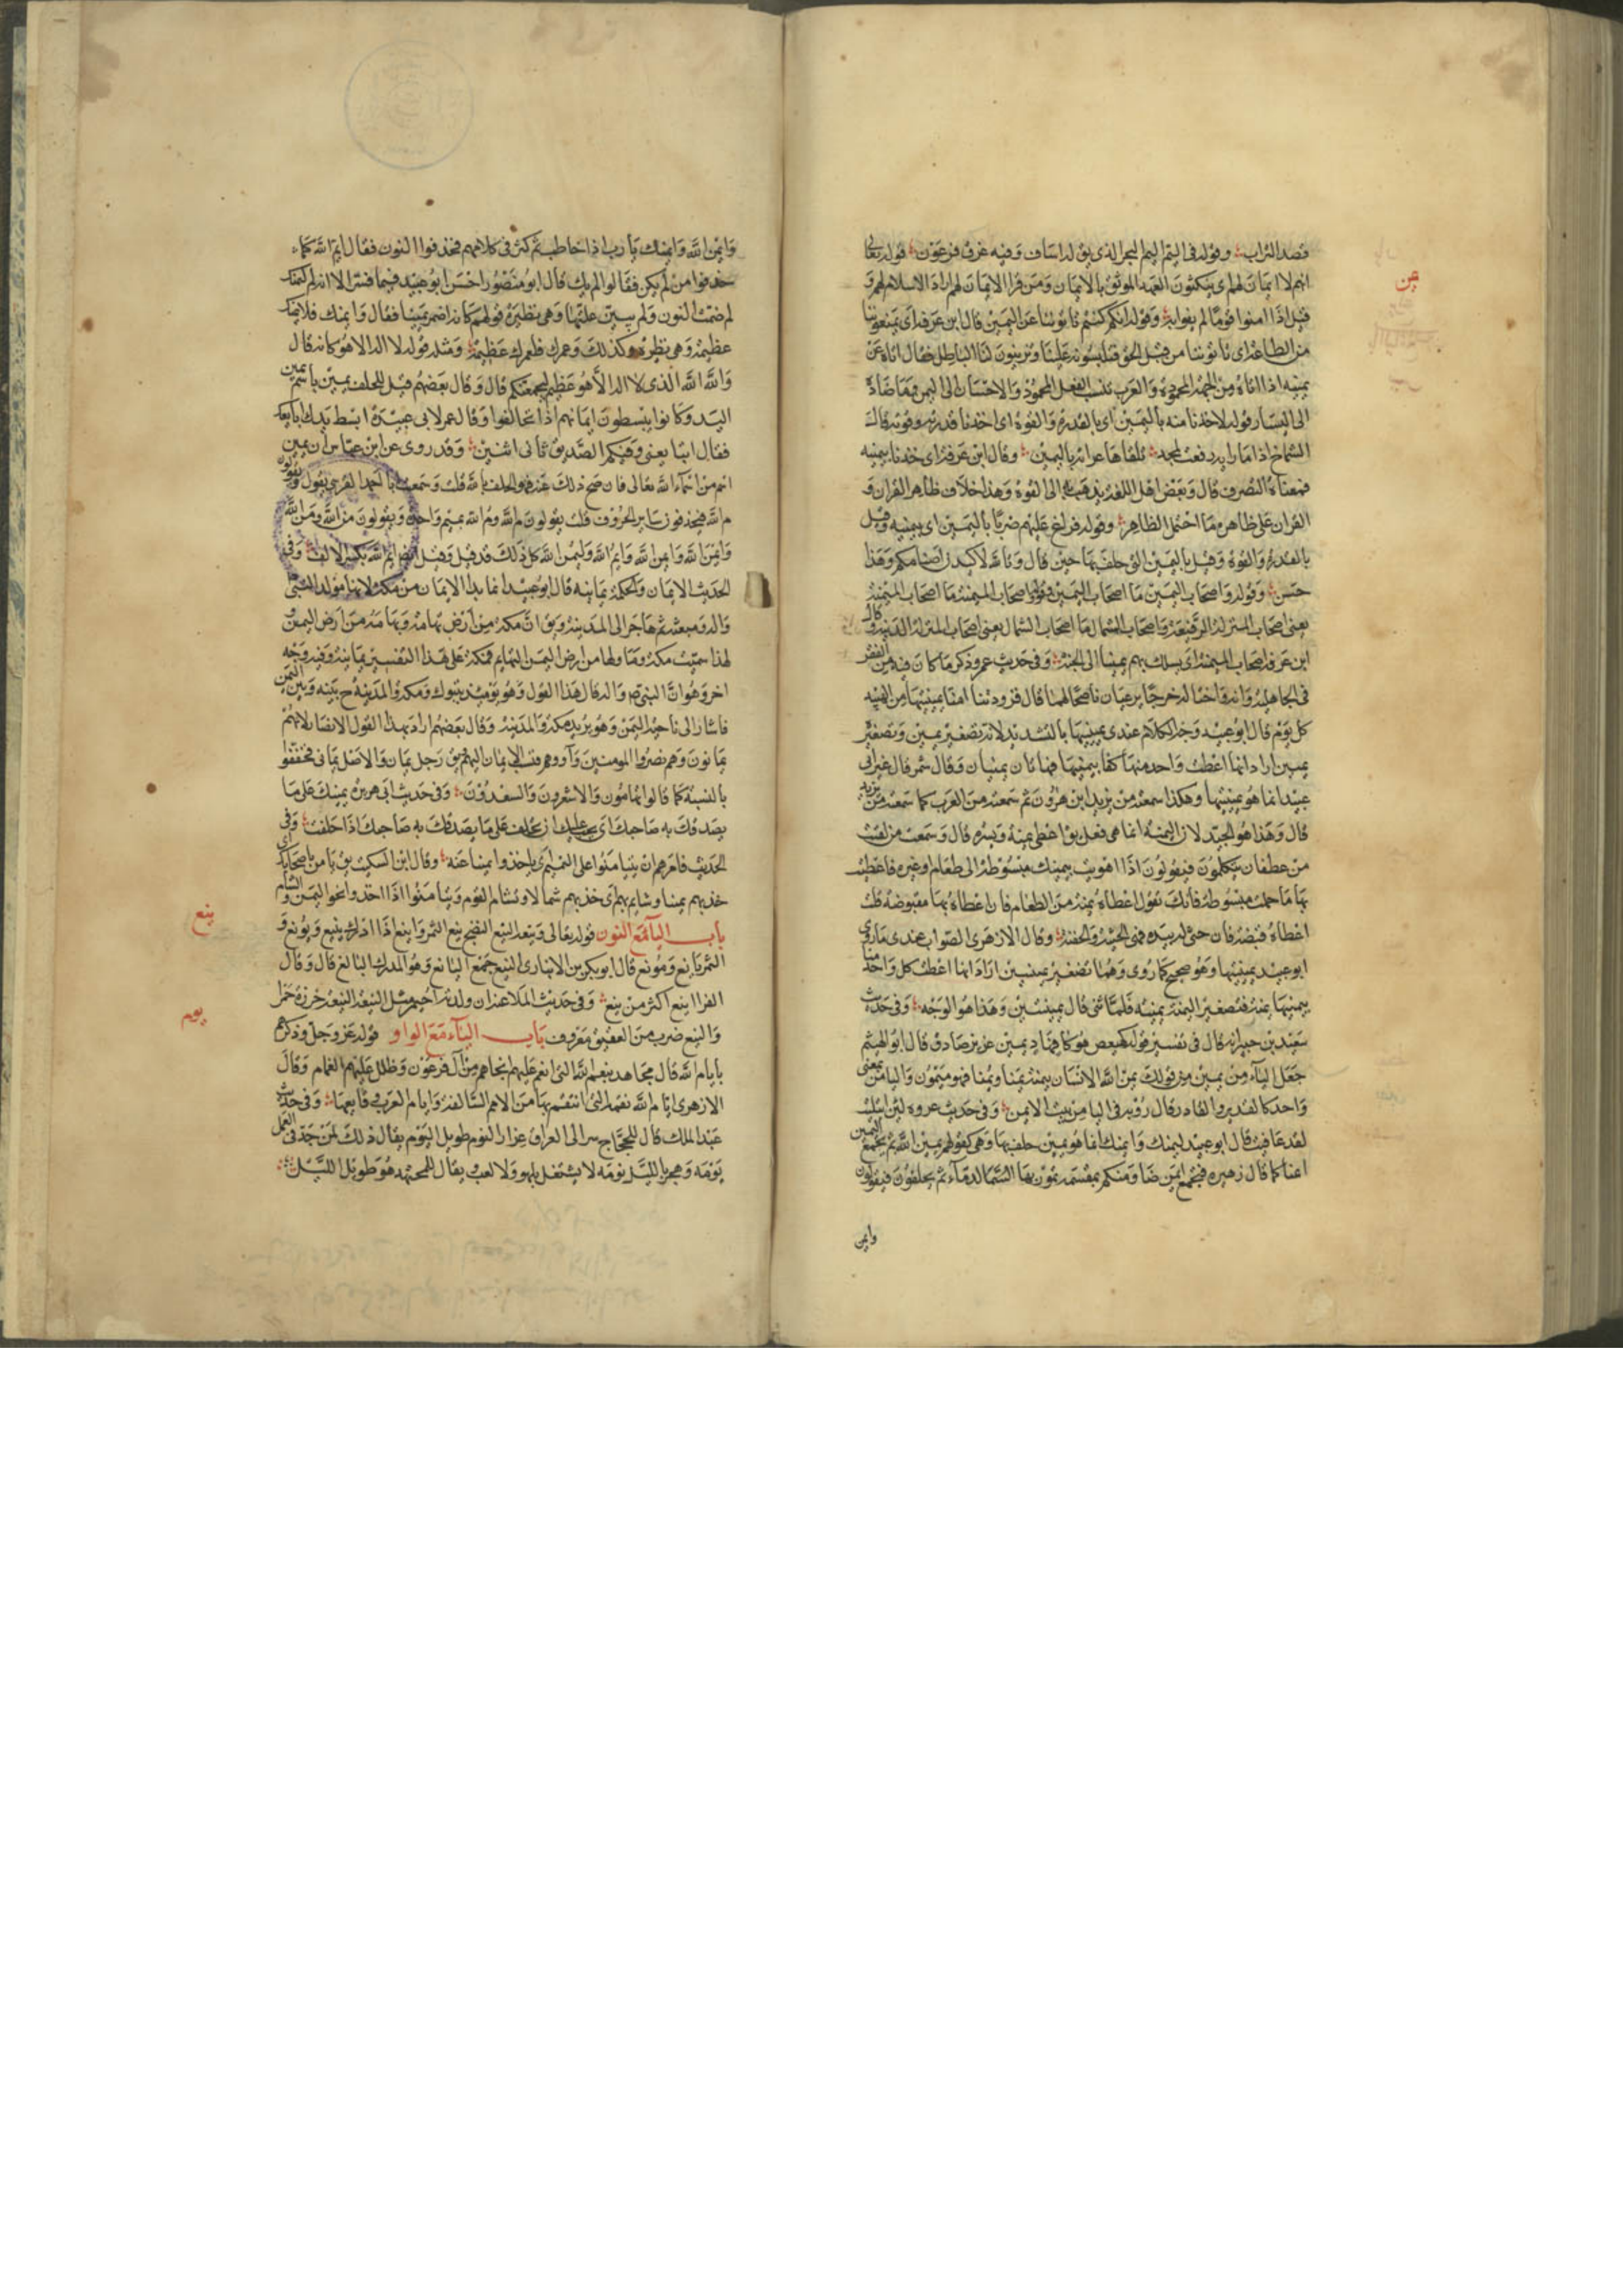 قصد التراب وقوله في اليم اليم البحر الذي يق له اساف وفيه غرق فرعون قوله تعالى
يمن
انهم لا ايمان لهم اى ينكثون العهد الموثق بالايمان ومن قرا الايمان لهم اراد الاسلام لهم و
قيل اذا امنوا قوما لم يفوا به وقوله انكم كنتم تاتوننا عن اليمين قال ابن عرفة اى تمنعوننا
من الطاعة اى تاتوننا من قبل الحق فتلبسونه علينا وتزينون لنا الباطل فقال اتاه عن
يمينه اذا اتاه من الجهة المحمودة والعرب تنسب الفعل المحمود والاحسان الى اليمن وما ضاده
الى اليسار قوله لاخذنا منه باليمين اى بالقدرة والقوة اى اخذنا قدرته وقوته قال
الشماخ اذا ما راية رفعت لمجد تلقاها عرابة باليمين وقال ابن عرفة اى خذنا بيمينه
فمعناه التصرف قال وبعض اهل اللغة يذهب الى القوة وهذا خلاف ظاهر القران و
القران على ظاهره ما احتمل الظاهر وقوله فراغ عليهم ضربا باليمين اى بيمينه وقيل
بالقدرة والقوة وقيل باليمين التى حلف بها حين قال وتالله لاكيدن اصنامكم وهذا
حسن وقوله واصحاب اليمين ما اصحاب اليمين وقوله اصحاب الميمنة ما اصحاب الميمنة
يعنى اصحاب المنزلة الرفيعة واصحاب الشمال ما اصحاب الشمال يعنى اصحاب المنزلة الدنية وقال
ابن عرفة اصحاب الميمنة اى يسلك بهم يمينا الى الجنة وفى حديث عمر وذكر ما كان فيه من الفقر
فى الجاهلية وانه واختا له خرجا يرعيان ناضحا لهما قال فزودتنا امنا يمينتيها من الهبيد
كل يوم قال ابو عبيد وجه الكلام عندى يمينيها بالتشديد لانه تصغير يمين وتصغير
يمين اراد انها اعطت واحد منهما كفا بيمينها فهاتان يمينان وقال شمر قال غير ابى
عبيد انما هو يمينتيها وهكذا سمعته من يزيد ابن هرون ثم سمعته من العرب كما سمعته من يزيد
قال وهذا هو الجيد لان اليمنة انما هى فعل يق اعطى يمنة ويسرة قال وسمعت من لقيت
من غطفان يتكلمون فيقولون اذا اهويت بيمينك مبسوطة الى طعام او غيره فاعطيت
بها ما حملت مبسوطة فانك تقول اعطاه يمنة من الطعام فان اعطاه بها مقبوضة قلت
اعطاه قبضة فان حثى له بيده فهى الحثية والحفنة وقال الازهرى الصواب عندى ما روى
ابو عبيد يمينيها وهو صحيح كما روى وهما تصغير يمينين اراد انها اعطت كل واحد منا
بيمينها يمنة فتصغير اليمنة يمينة فلما ثنى قال يمينتين وهذا هو الوجه وفى حديث
سعيد بن جبير انه قال فى تفسير قوله كهيعص هو كاف هاد يمين عزيز صادق قال ابو الهيثم
جعل الياء من يمين من قولك يمن الله الانسان يمنه يمنا ويمنا فهو ميمون واليامن بمعنى
واحد كالقدير والقادر قال روبة فى اليامن بيت الايمن وفى حديث عروة لئن ابتليت
لقد عافيت قال ابو عبيد ليمنك وايمنك انما هو يمين حلف بها وهى كقولهم يمين الله ثم تجمع اليمين
ايمنا كما قال زهير فتجمع ايمن منا ومنكم بمقسمة تمور بها الدماء ثم يحلفون فيقولون
وايمن
وايمن الله وايمنك يا رب اذا خاطب ثم كثر فى كلامهم فحذفوا النون فقال ايم الله كما
حذفوا من لم يكن فقالوا لم يك قال ابو منصور احسن ابو عبيد فيما فسر الا انه لم
لم ضمت النون ولم يبين علتها وهى نظيرة قولهم كانه اضمر يمينا فقال وايمنك فلايمنك
عظيمة وهى نظيره وكذلك وعمرك فلعمرك عظيمة ومثله قوله لا اله الا هو كانه قال
والله الله الذى لا اله الا هو عظيم ليجمعنكم قال وقال بعضهم قيل للحلف يمين باسم يمين
اليد وكانوا يبسطون ايمانهم اذا تحالفوا وقال عمر لابى عبيدة ابسط يدك ابايعك
فقال اتبايعنى وفيكم الصديق ثانى اثنين وقد روى عن ابن عباس ان يمين
اسم من اسماء الله تعالى فان صح ذلك عنه فهو الحلف بالله قلت وسمعت ابا احمد القرشى يقول
م الله فيحذفون ساير الحروف قلت يقولون م الله وم الله بميم واحدة ويقولون من الله ومن الله
وايمن الله وايمن الله وايم الله وليمن الله كل ذلك قد قيل وقيل ايضا ايم الله بكسر الالف وفى
الحديث الايمان يمان والحكمة يمانية قال ابو عبيد انما بدا الايمان من مكة لانها مولد النبى
واله ومبعثه ثم هاجر الى المدينة ويق ان مكة من ارض تهامة وتهامة من ارض اليمن
لهذا سميت مكة وما ولها من ارض اليمن التهايم فمكة على هذا التفسير يمانية وفيه وجه
اخر وهو ان النبى ص واله قال هذا القول وهو يومئذ بتبوك ومكة والمدينة ح بينه وبين اليمن
فاشار الى ناحية اليمن وهو يريد مكة والمدينة وقال بعضهم اراد بهذا القول الانصار لانهم
يمانون وهم نصروا المومنين وآووهم فنسب الايمان اليهم يق رجل يمان والاصل يمانى فخففوا
ياء النسبة كما قالوا تهامون والاشعرون والسعدون وفى حديث ابى هريرة يمينك على ما
يصدقك به صاحبك اى يجب عليك ان تحلف على ما يصدقك به صاحبك اذا حلفت وفى
الحديث فامرهم ان يتيامنوا على الغميم اى ياخذوا يمينا عنه وقال ابن السكيت يق يامن باصحابك
خذ بهم يمينا وشايم بهم اى خذ بهم شمالا وتشام القوم وتيامنوا اذا اخذوا نحو اليمن والشام
ينع
باب الياء مع النون قوله تعالى وينعه الينع النضج ينع الثمر واينع اذا ادرك يينع ويونع و
الثمر يانع ومونع قال ابو بكر بن الانبارى الينع جمع اليانع وهو المدرك البالغ قال وقال
الفرا اينع اكثر من ينع وفى حديث الملاعنة ان ولدته احيمر مثل الينعة الينعة خرزة حمرا
يوم
والينع ضرب من العقيق معروف باب الياء مع الواو قوله عز وجل وذكرهم
بايام الله قال مجاهد بنعم الله التى انعم عليهم بنجاهم من آل فرعون وظلل عليهم الغمام وقال
الازهرى ايام الله نقمه التى انتقم بها من الامم السالفة وايام العرب وقايعها وفى حديث
عبد الملك قال للحجاج سر الى العراق غرار النوم طويل اليوم يقال ذلك لمن جد فى العمل
يومه وهجر بالليل نومه لا يشتغل بلهو ولا لعب يقال للمجتهد هو طويل الليل